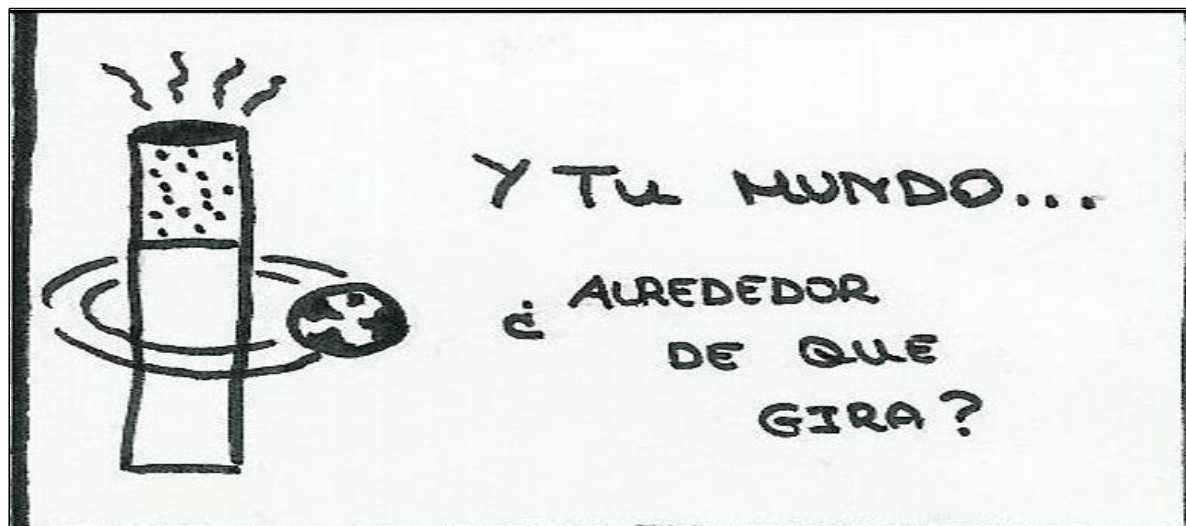 Y TU MUNDO...
¿ ALREDEDOR
DE QUE
GIRA?